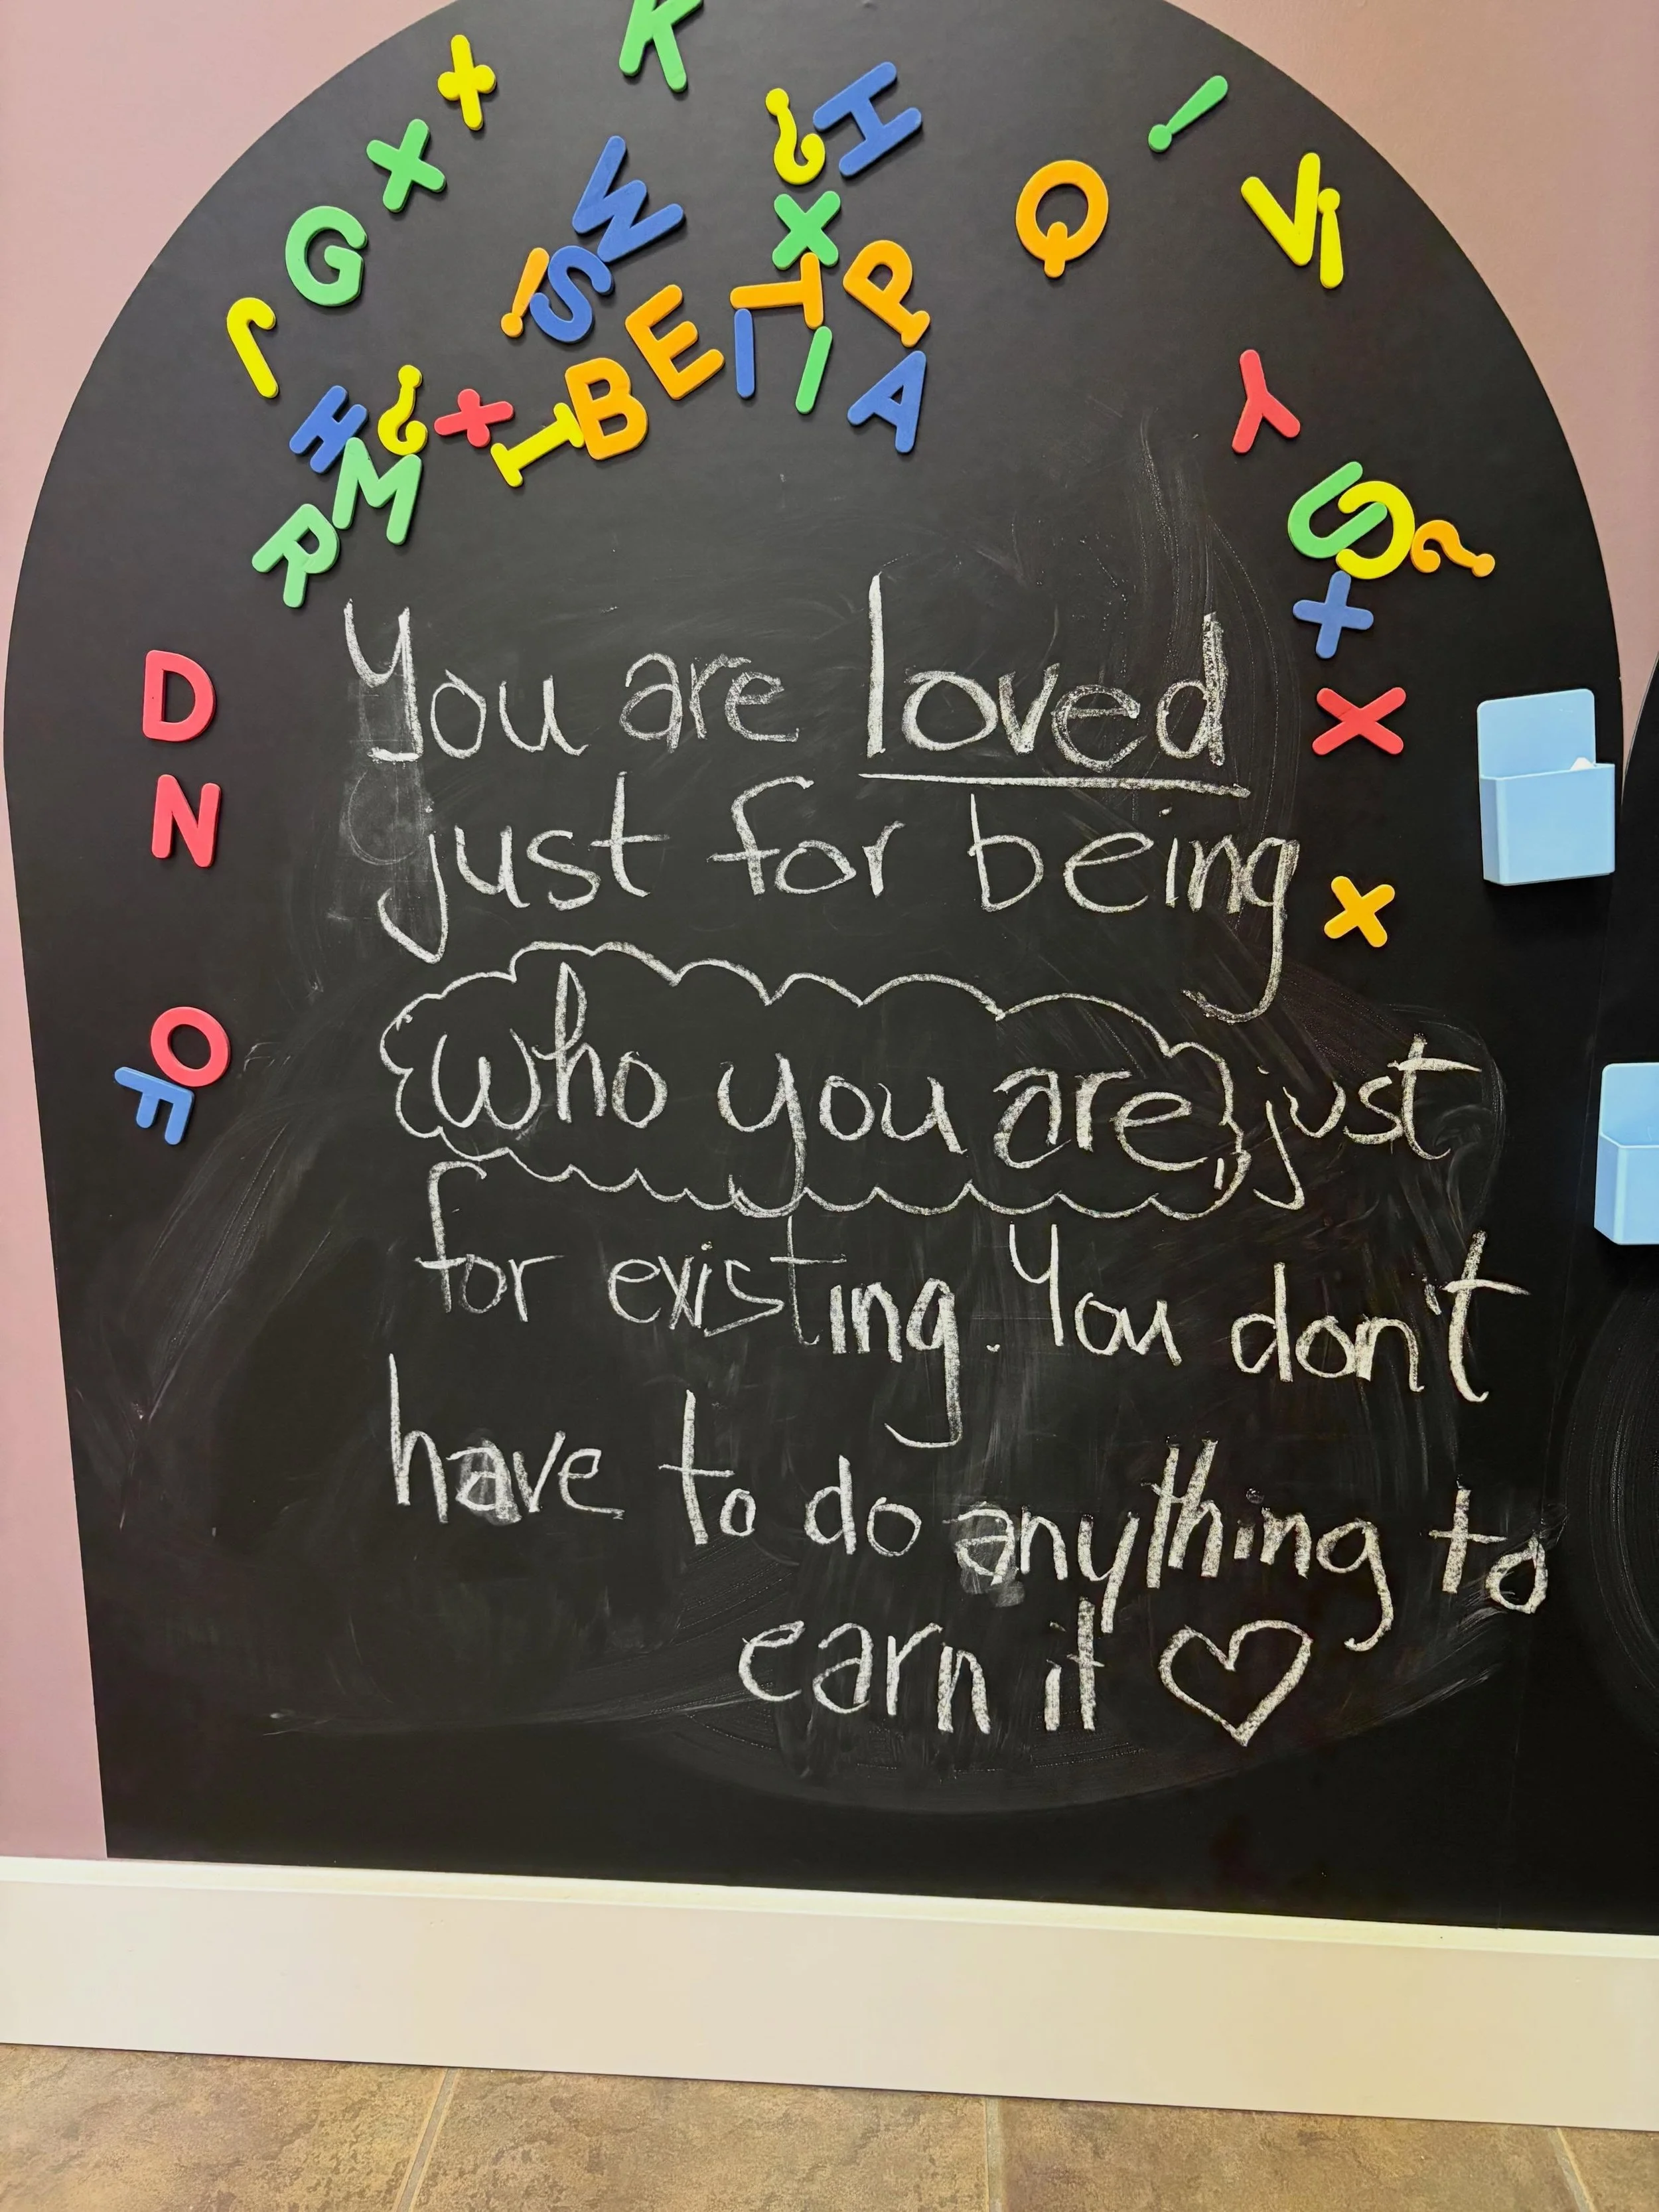 K
+
X
?
H
!
G
W
X
Q
V
!
J
!
S
E
T
P
H
?
X
I
B
A
Y
M
R
U
S
?
+
D
X
N
X
O
F
You are loved
just for being
who you are, just
for existing. You don't
have to do anything to
earn it ♡